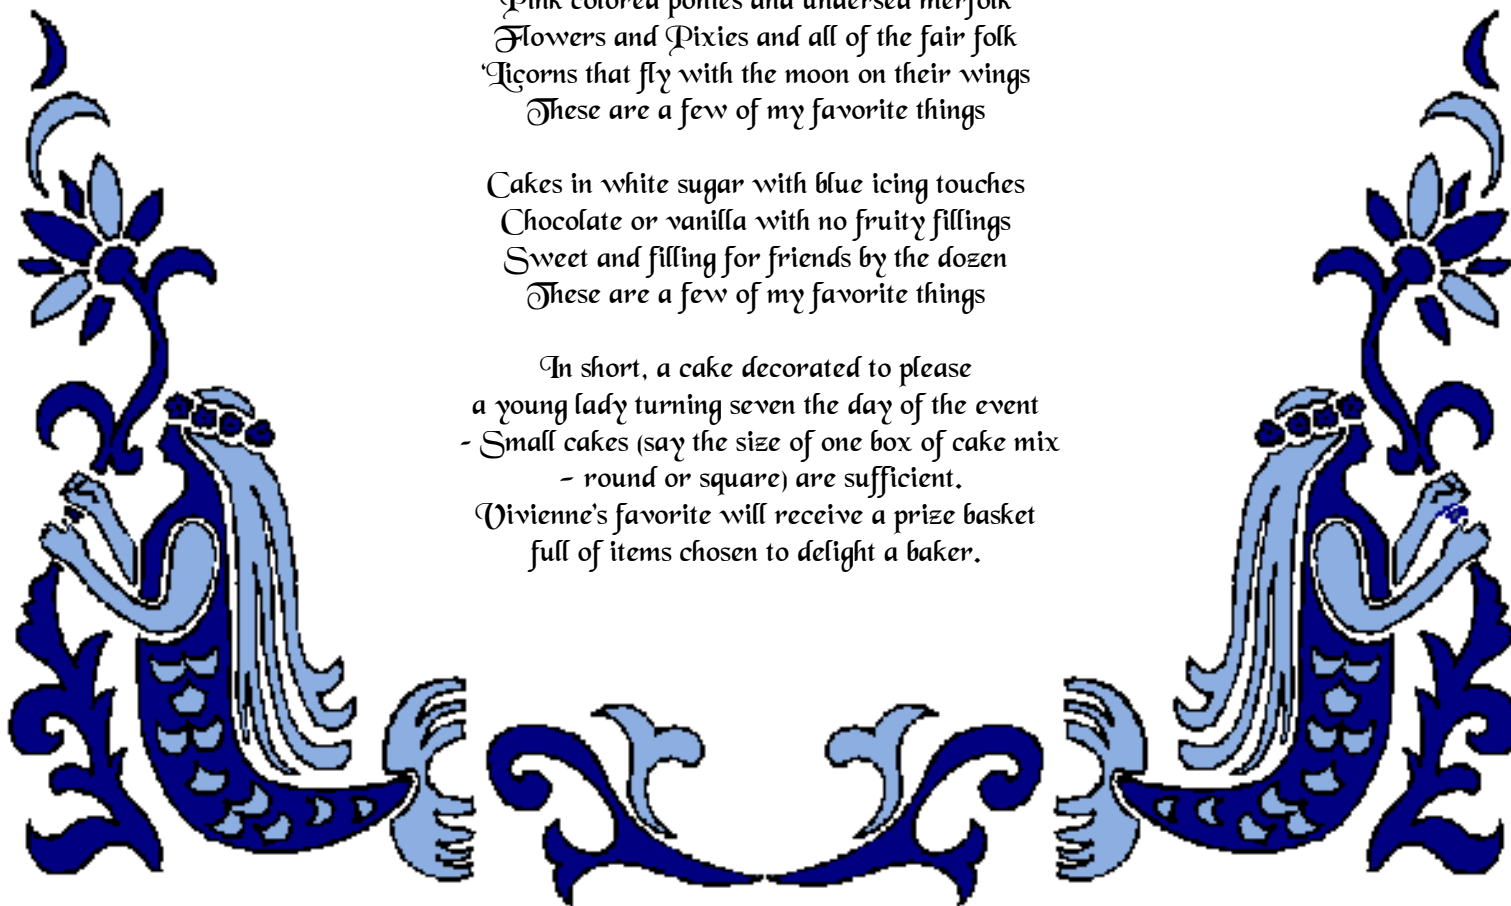 Pink colored ponies and undersea merfolk
Flowers and Pixies and all of the fair folk
'Licorns that fly with the moon on their wings
These are a few of my favorite things
Cakes in white sugar with blue icing touches
Chocolate or vanilla with no fruity fillings
Sweet and filling for friends by the dozen
These are a few of my favorite things
In short, a cake decorated to please
a young lady turning seven the day of the event
- Small cakes (say the size of one box of cake mix
- round or square) are sufficient.
Vivienne's favorite will receive a prize basket
full of items chosen to delight a baker.